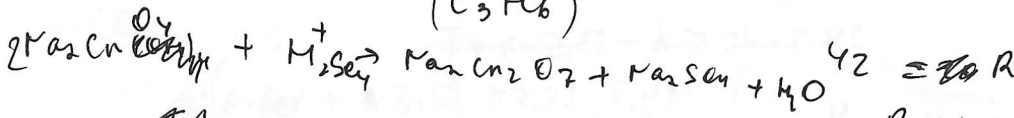 (C3H6)
2Na2CrO4 + H2SO4 → Na2Cr2O7 + Na2SO4 + H2O 42 = R